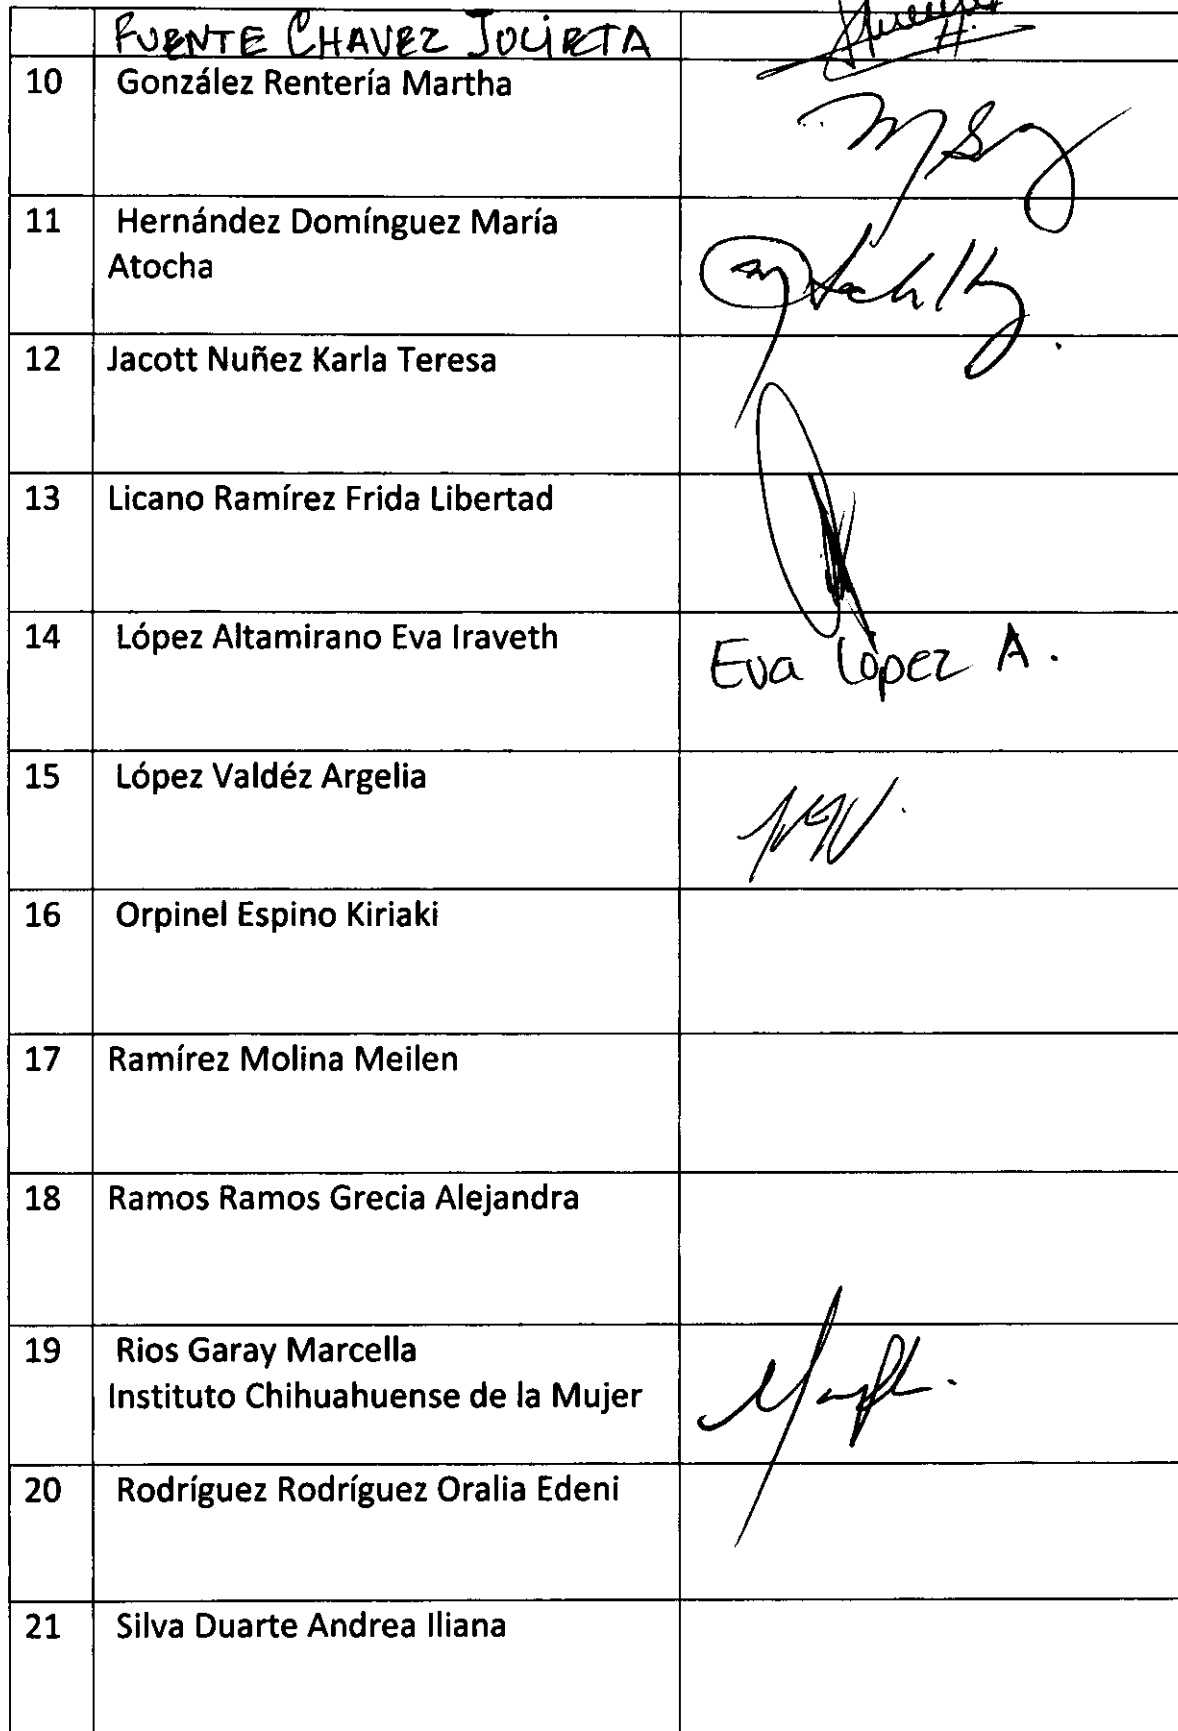 FUENTE CHAVEZ JULIETA
10 González Rentería Martha
11 Hernández Domínguez María
Atocha
12 Jacott Nuñez Karla Teresa
13 Licano Ramírez Frida Libertad
14 López Altamirano Eva Iraveth
Eva López A.
15 López Valdéz Argelia
16 Orpinel Espino Kiriaki
17 Ramírez Molina Meilen
18 Ramos Ramos Grecia Alejandra
19 Rios Garay Marcella
Instituto Chihuahuense de la Mujer
20 Rodríguez Rodríguez Oralia Edeni
21 Silva Duarte Andrea Iliana